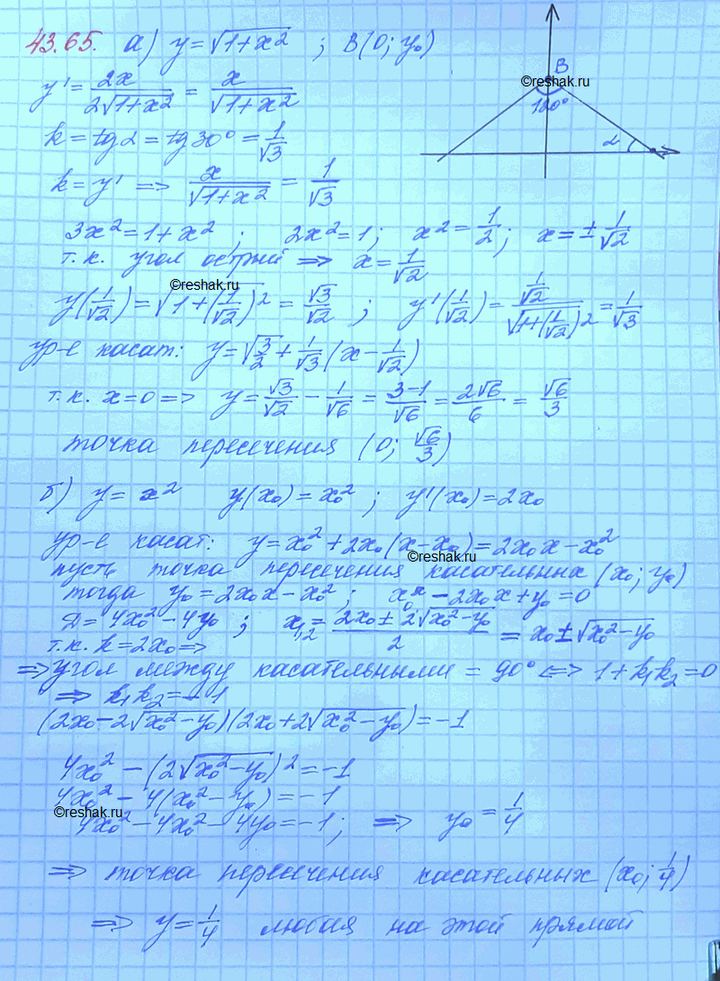 43.65. а) y = √(1+x²) ; B(0; y₀)
B
©reshak.ru
120°
α
y' = 2x/(2√(1+x²)) = x/√(1+x²)
k = tg α = tg 30° = 1/√3
k = y' ⇒ x/√(1+x²) = 1/√3
3x² = 1+x² ; 2x² = 1; x² = 1/2; x = ± 1/√2
т.к. угол острый ⇒ x = 1/√2
©reshak.ru
y(1/√2) = √(1+(1/√2)²) = √3/√2 ; y'(1/√2) = (1/√2)/√(1+(1/√2)²) = 1/√3
ур-е касат: y = √(3/2) + 1/√3 (x − 1/√2)
т.к. x=0 ⇒ y = √3/√2 − 1/√6 = (3−1)/√6 = 2√6/6 = √6/3
точка пересечения (0; √6/3)
б) y = x² y(x₀) = x₀² ; y'(x₀) = 2x₀
ур-е касат: y = x₀² + 2x₀(x−x₀) = 2x₀x − x₀²
©reshak.ru
пусть точка пересечения касательных (x₀; y₀)
тогда y₀ = 2x₀x − x₀² ; − 2x₀x + y₀ = 0
Д = 4x₀² − 4y₀ ; x₁,₂ = (2x₀ ± 2√(x₀²−y₀))/2 = x₀ ± √(x₀²−y₀)
т.к. k = 2x₀ ⇒
⇒ угол между касательными = 90° ⇔ 1 + k₁k₂ = 0
⇒ k₁k₂ = −1
(2x₀ − 2√(x₀²−y₀))(2x₀ + 2√(x₀²−y₀)) = −1
4x₀² − (2√(x₀²−y₀))² = −1
4x₀² − 4(x₀² − y₀) = −1
©reshak.ru
4x₀² − 4x₀² − 4y₀ = −1 ; ⇒ y₀ = 1/4
⇒ точка пересечения касательных (x₀; 1/4)
⇒ y = 1/4 любая на этой прямой